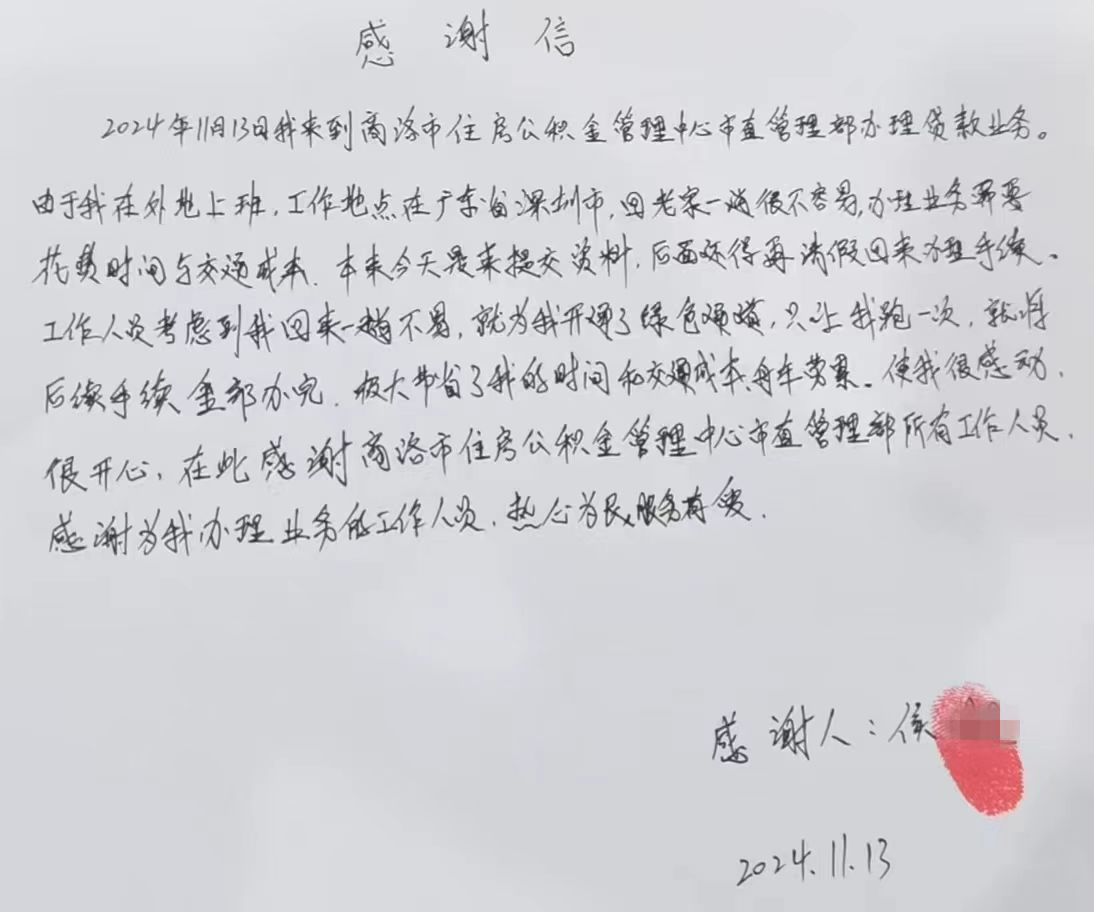 感谢信
2024年11月13日我来到商洛市住房公积金管理中心市直管理部办理贷款业务。
由于我在外地上班，工作地点在广东省深圳市，回老家一趟很不容易，办理业务都要
花费时间与交通成本．本来今天是来提交资料，后面还得再请假回来办理手续。
工作人员考虑到我回来一趟不易，就为我开通了绿色通道，只让我跑一次，就将
后续手续全部办完．极大节省了我的时间和交通成本，舟车劳累。使我很感动，
很开心，在此感谢商洛市住房公积金管理中心市直管理部所有工作人员，
感谢为我办理业务的工作人员，热心为民，服务有爱．
感谢人：侯
2024.11.13